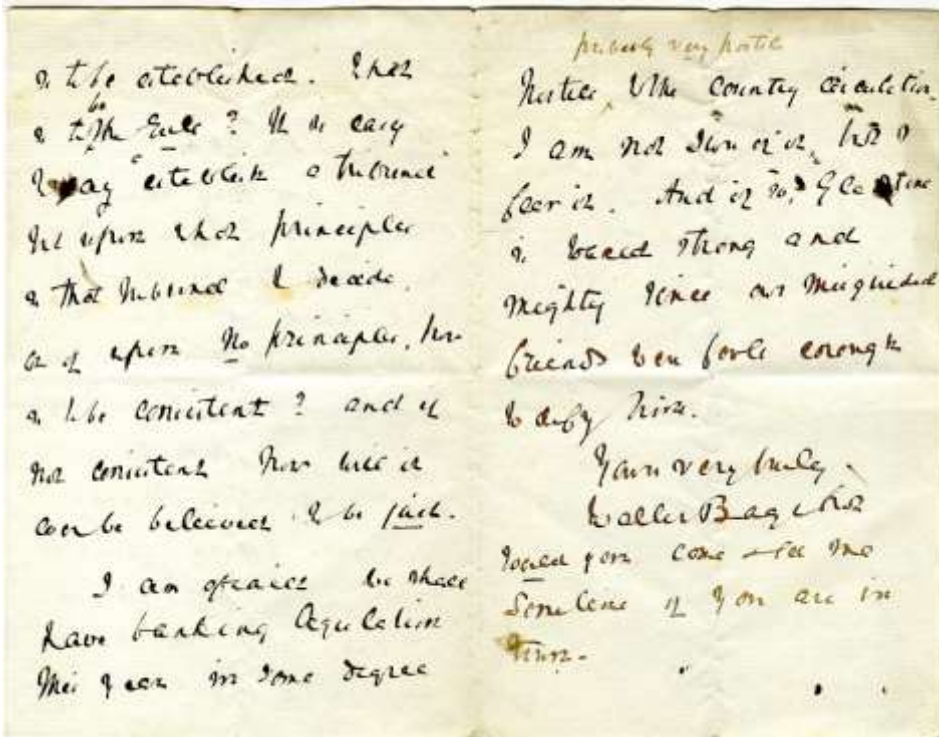 is to be established. What
is to be the Rule? It is easy
to say establish a tribunal
but upon what principles
is that tribunal to decide.
or if upon no principles, how
is it to be consistent? and if
not consistent how will it
ever be believed to be just.
I am afraid we shall
have banking legislation
this year in some degree
probably very hostile
hostile to the country circulation.
I am not sure of it, but I
fear it. And if so, Gladstone
is strong and
mighty since our misguided
friends were fools enough
to defy him.
Yours very truly
Walter Bagehot
Would you come & see me
sometime if you are in
town.